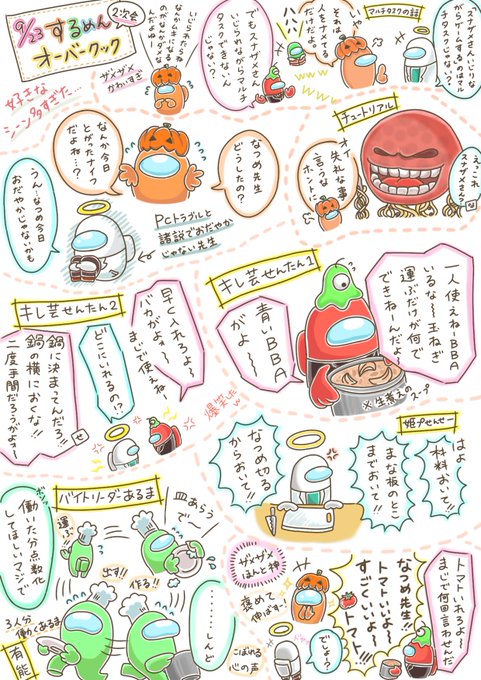 9/23
するめん
2次会
オーバークック
好きな
シーン多すぎた…
マルチタスクの話
スナザメさんいじりな
がらゲームするのはマル
チタスクじゃない？
それは
人をナメてる
だけだよ。
ハハハ
でもスナザメさん
いじられながらマルチ
タスクできない
んじゃない？
ザメザメ
かわいすぎ
チュートリアル
えっこれ
スナザメさん？
オイ
失礼な事
言うな
ホント！
なつめ先生
どうしたの？
なんか今日
とがったナイフ
だよオ…？
うん、なつめ今日
おだやかじゃないかも
PCトラブルと
諸説でおだやか
じゃない先生
キレ芸せんたん1
一人使えねーBBA
いるな〜玉ねぎ
運ぶだけが何で
できねーんだよ〜
青いBBA
がよ〜〜
※生煮えの
スープ
キレ芸せんたん2
早く入れろよ〜
バカがよぉ〜〜
まじで使えねー
どこにいれるの！？
鍋に決まってんだろ!!
鍋の横におくな!!
二度手間だろうがよォー
せ
爆笑した
姫プせんせー
はよ
材料おいて!!
まな板のとこ
までおいて!!
なつめ切る
からおいて!!
バイトリーダーあるま
皿あらう
で
運ぶ
出す!!
作る!!
働いた分点数化
してほしいマジで
………しんど
3人分
働くあるま
有能
こぼれる
心の声
ザメザメ
ほんと神
トマトいれろよ〜
まじで何回言わせんだ
なつめ先生!!
トマトいいよ〜
すごくいいよ〜
トマト!!
褒めて
伸ばす
でしょ？